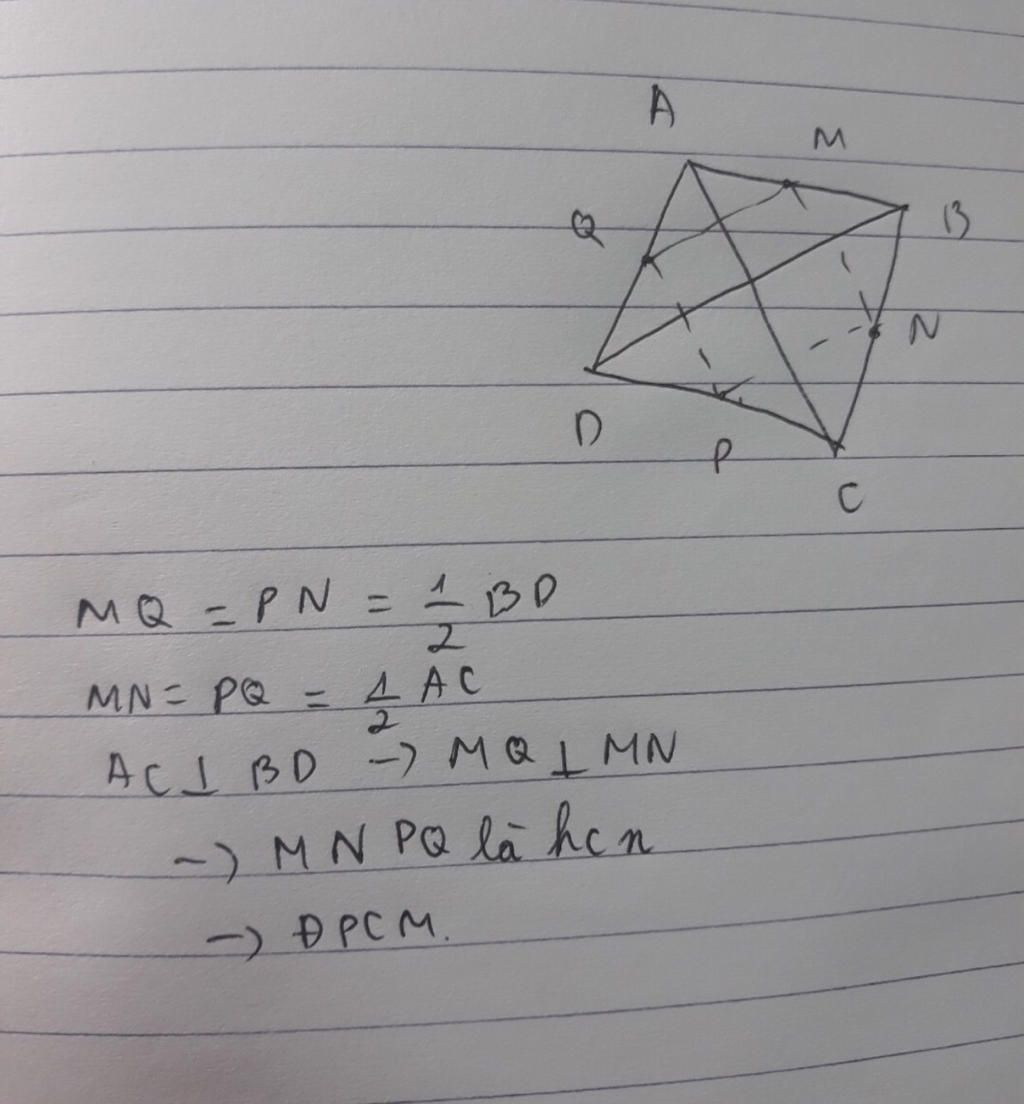 A
M
Q
B
N
D
P
C
MQ = PN = 1/2 BD
MN = PQ = 1/2 AC
AC ⊥ BD → MQ ⊥ MN
→ MNPQ là hcn
→ ĐPCM.